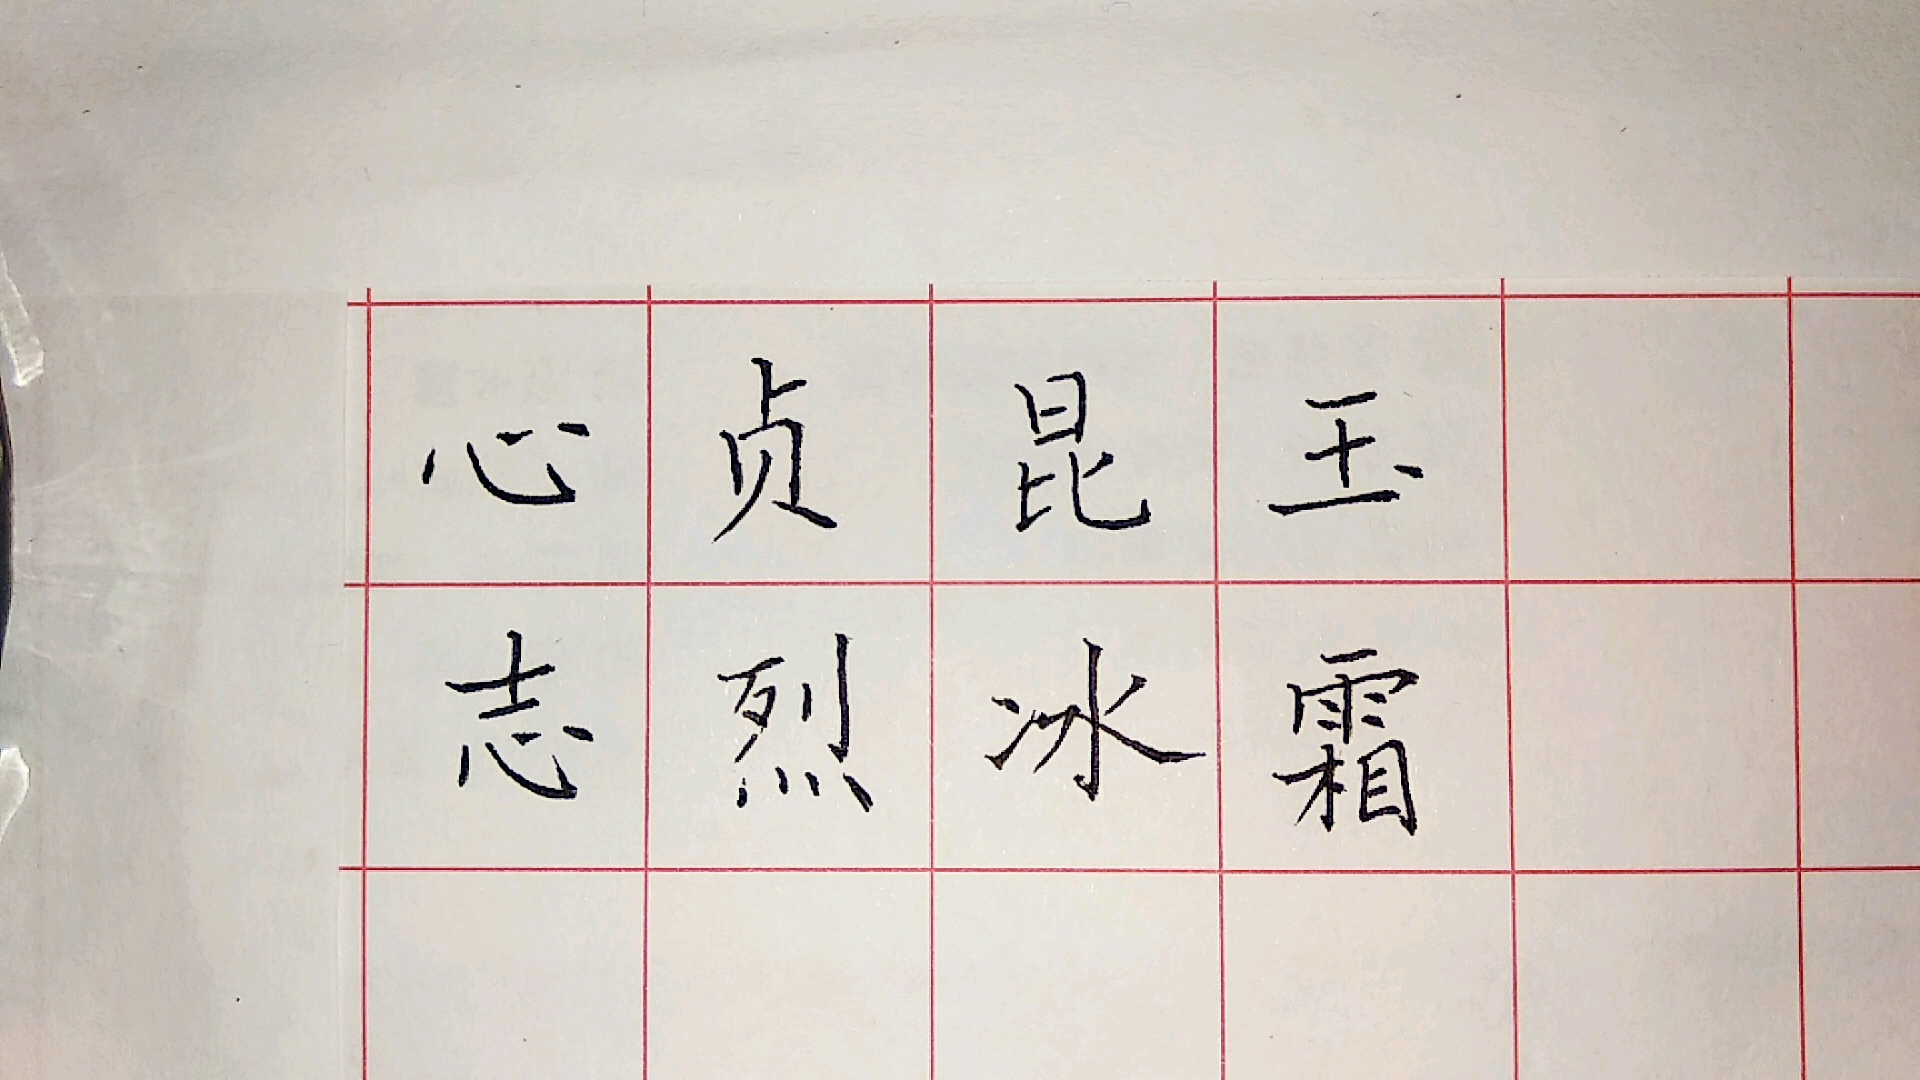 心贞昆玉
志烈冰霜